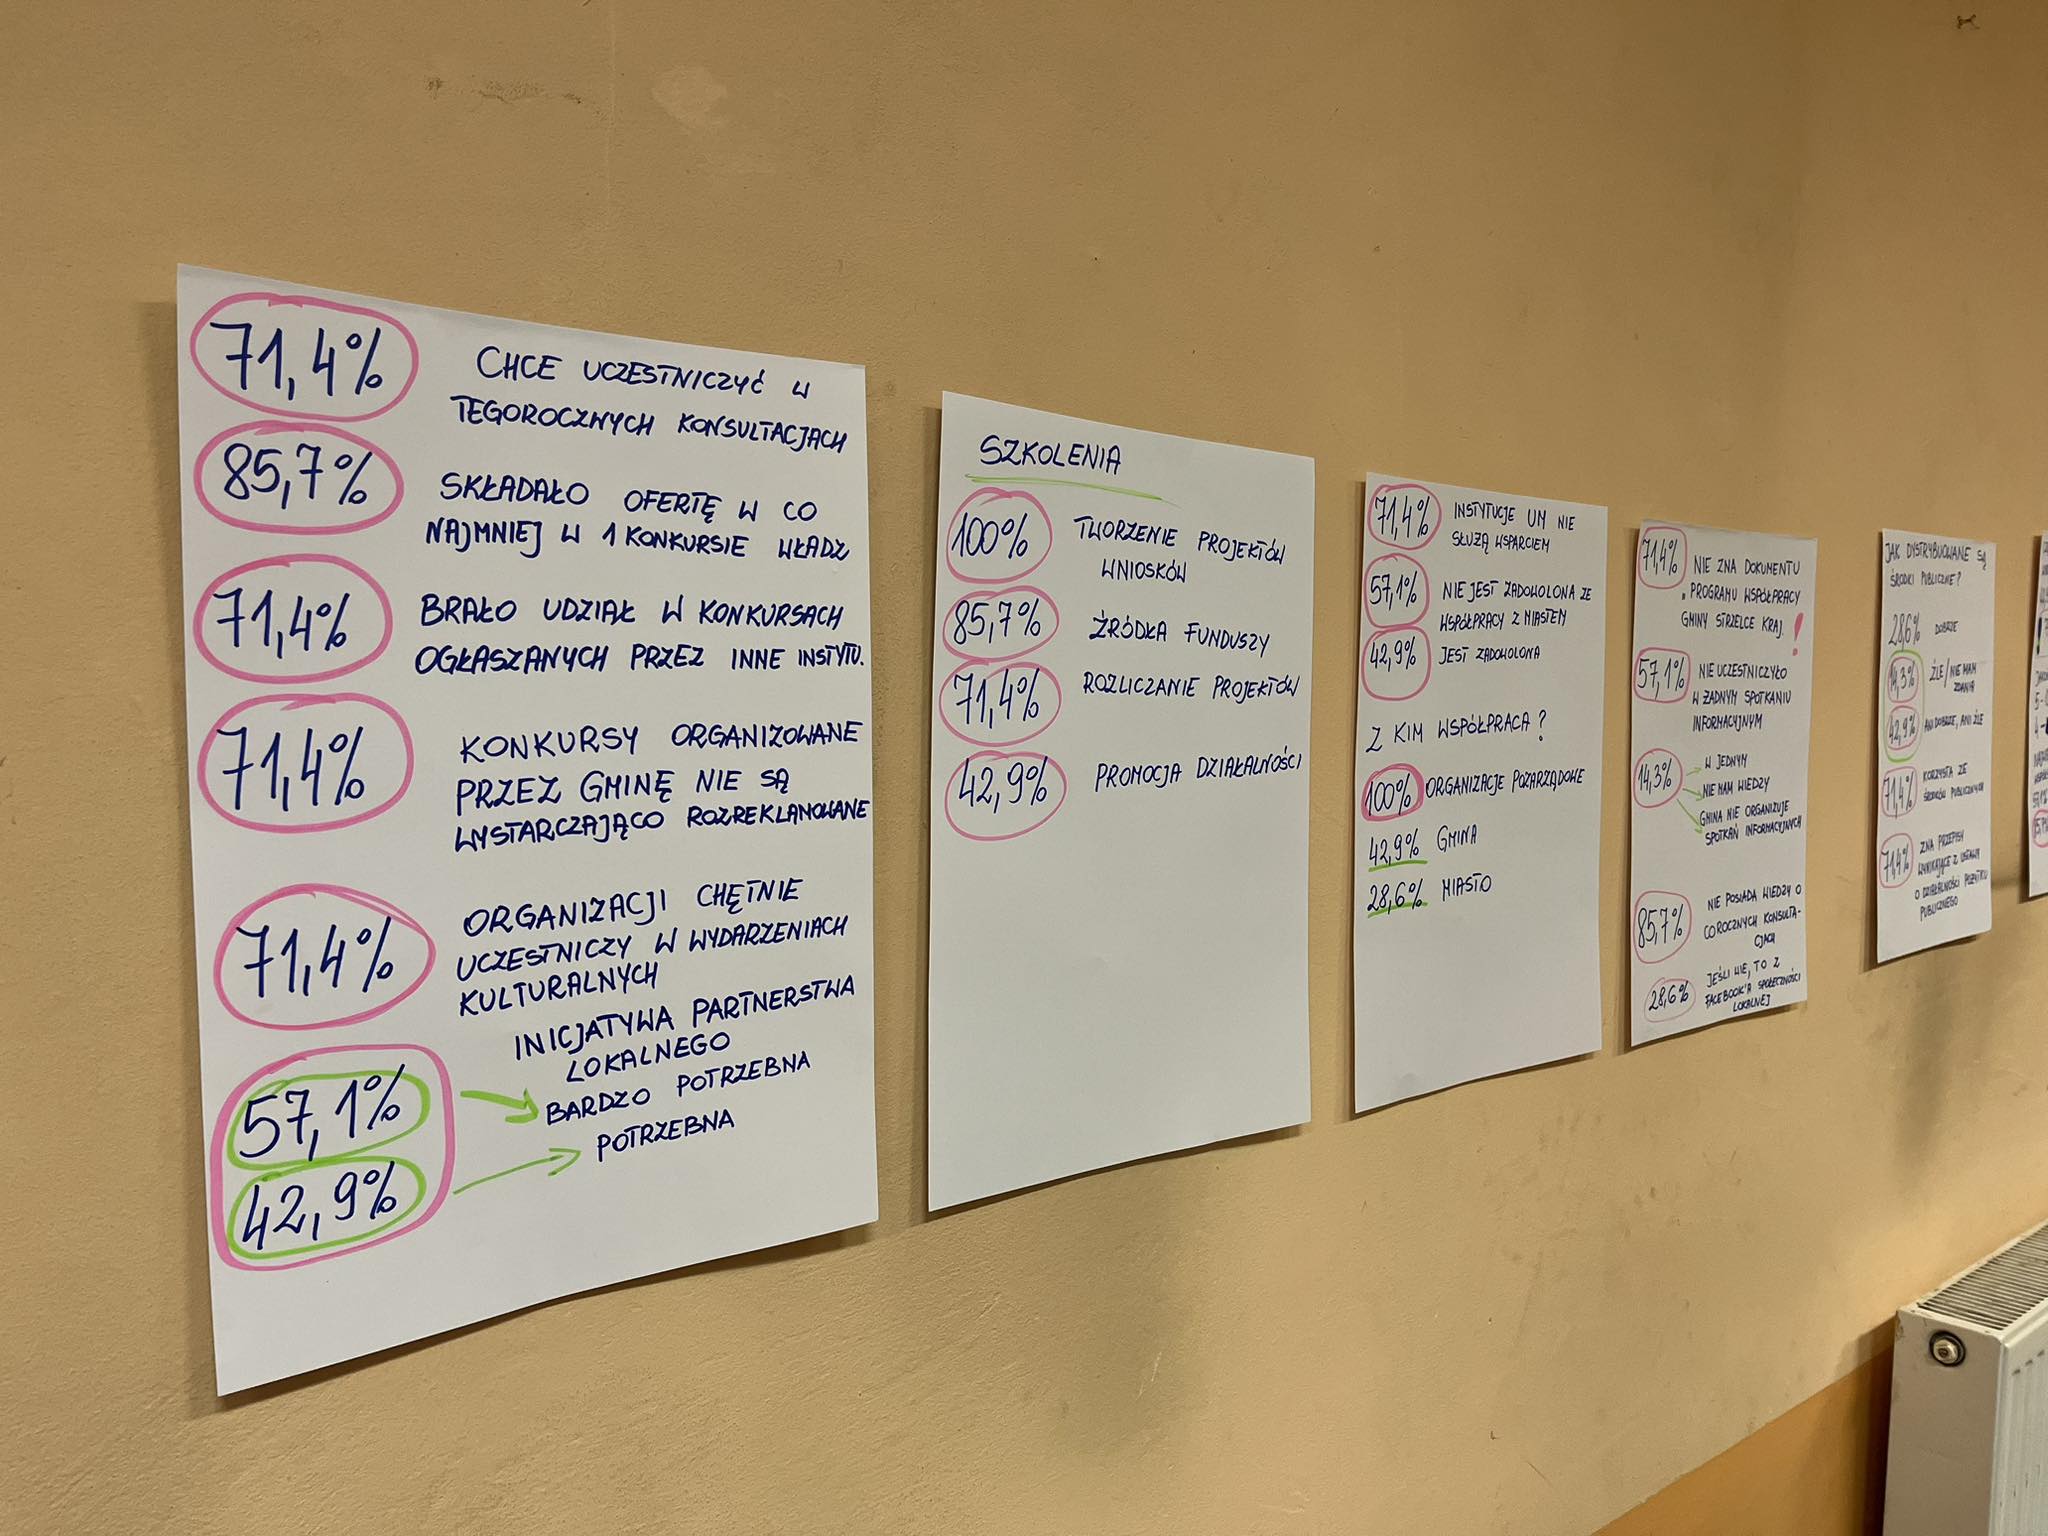 71,4% CHCE UCZESTNICZYĆ W
TEGOROCZNYCH KONSULTACJACH
85,7% SKŁADAŁO OFERTĘ W CO
NAJMNIEJ W 1 KONKURSIE WŁADZ
71,4% BRAŁO UDZIAŁ W KONKURSACH
OGŁASZANYCH PRZEZ INNE INSTYTU.
71,4% KONKURSY ORGANIZOWANE
PRZEZ GMINĘ NIE SĄ
WYSTARCZAJĄCO ROZREKLAMOWANE
71,4% ORGANIZACJI CHĘTNIE
UCZESTNICZY W WYDARZENIACH
KULTURALNYCH
INICJATYWA PARTNERSTWA
LOKALNEGO
57,1% BARDZO POTRZEBNA
42,9% POTRZEBNA
SZKOLENIA
100% TWORZENIE PROJEKTÓW
WNIOSKÓW
85,7% ŹRÓDŁA FUNDUSZY
71,4% ROZLICZANIE PROJEKTÓW
42,9% PROMOCJA DZIAŁALNOŚCI
71,4% INSTYTUCJE UM NIE
SŁUŻĄ WSPARCIEM
57,1% NIE JEST ZADOWOLONA ZE
WSPÓŁPRACY Z MIASTEM
42,9% JEST ZADOWOLONA
Z KIM WSPÓŁPRACA?
100% ORGANIZACJE POZARZĄDOWE
42,9% GMINA
28,6% MIASTO
71,4% NIE ZNA DOKUMENTU
PROGRAMU WSPÓŁPRACY
GMINY STRZELCE KRAJ. !
57,1% NIE UCZESTNICZYŁO
W ŻADNYM SPOTKANIU
INFORMACYJNYM
14,3% W JEDNYM
NIE MAM WIEDZY
GMINA NIE ORGANIZUJE
SPOTKAŃ INFORMACYJNYCH
85,7% NIE POSIADA WIEDZY O
COROCZNYCH KONSULTA-
CJACH
28,6% JEŚLI WIE, TO Z
FACEBOOK'A SPOŁECZNOŚCI
LOKALNEJ
JAK DYSTRYBUOWANE SĄ
ŚRODKI PUBLICZNE?
28,6% DOBRZE
14,3% ŹLE/NIE MAM
ZDANIA
42,9% ANI DOBRZE, ANI ŹLE
71,4% KORZYSTA ZE
ŚRODKÓW PUBLICZNYCH
71,4% ZNA PRZEPISY
WYNIKAJĄCE Z USTAWY
O DZIAŁALNOŚCI POŻYTKU
PUBLICZNEGO